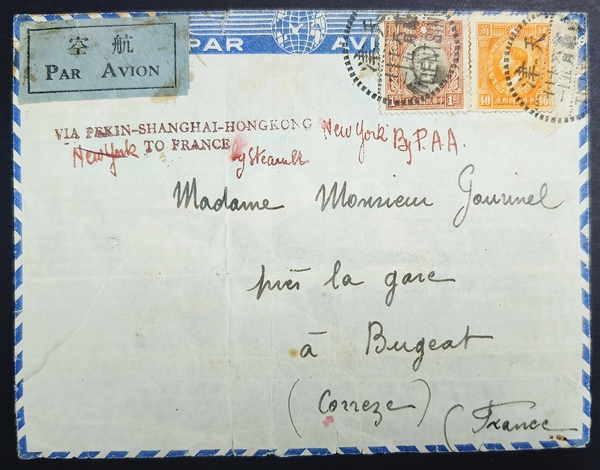 空 航
PAR AVION
PAR AVI
天
津
天
津
40 40
VIA PEKIN-SHANGHAI-HONGKONG New York By P.A.A.
New York TO FRANCE by Steamer
Madame Monsieur Gourinel
près la gare
à Bugeat
(Correze)
(France